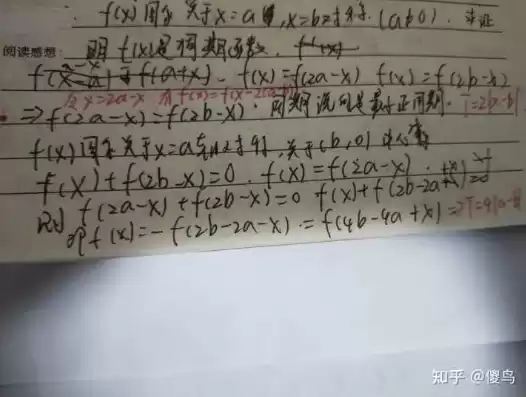 f(x)图象关于x=a,x=b对称.(a≠0).求证
阅读感想: 明f(x)是周期函数.
f(x-a)=f(a+x). f(x)=f(2a-x) f(x)=f(2b-x)
令x=2a-x 有f(x)=f(x-2
⇒f(2a-x)=f(2b-x).周期 T=2|b-a|
f(x)图象关于x=a 对称,关于(b,0)
f(x)+f(2b-x)=0. f(x)=f(2a-x).
则 f(2a-x)+f(2b-x)=0 f(x)+f(2b-2a+x)=0
即f(x)=-f(2b-2a-x).=f(4b-4a+x)⇒T=4|a-b|
知乎 @傻鸟